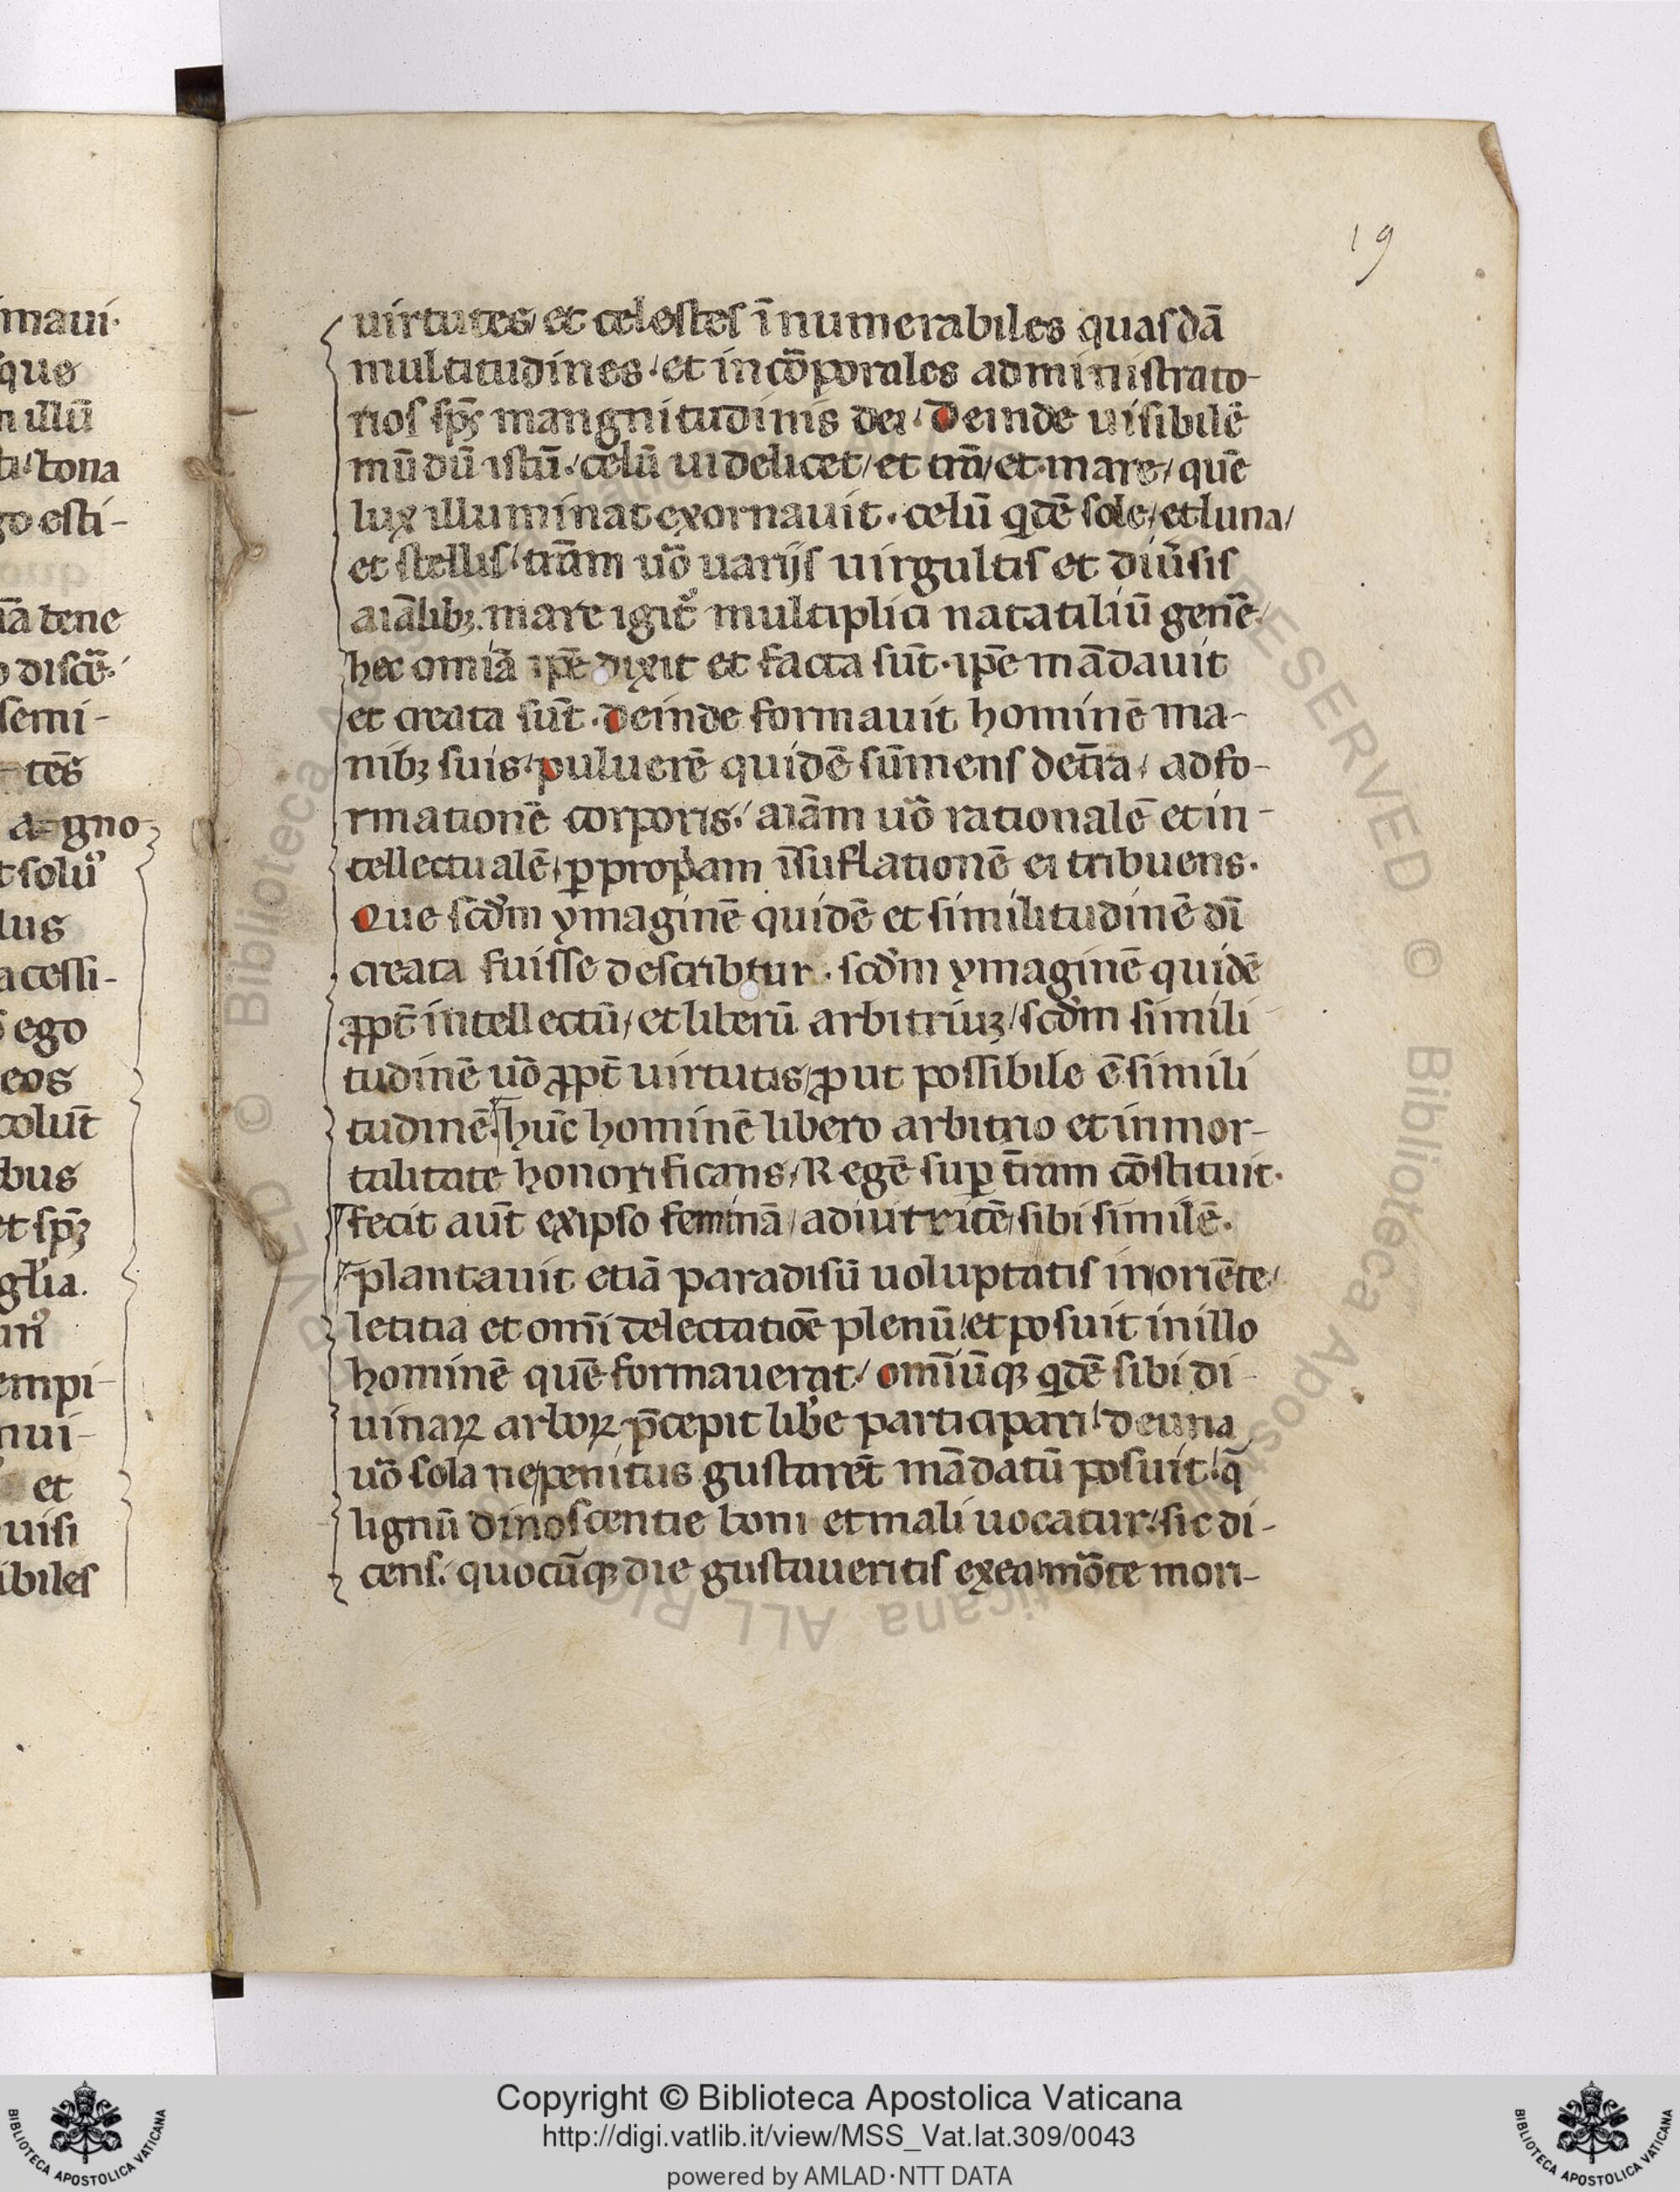 19
uirtutes/ et celestes īnumerabiles quasdā
multitudines/ et incōporales administrato-
rios sp̄ꝫ mangnitudinis dei/ Deinde uisibilē
mūdū istū./ celū uidelicet/ et trā̄/ et mare/ quē
lux illuminat exornauit. celū qͥdē sole/ et luna/
et stellis/ trā̄m uō uarijs uirgultis et diūsis
aiālibꝫ. mare igit᷑ multiplici natatiliū genē/
hec omīa ip̄e dixit et facta sūt. ip̄e mādauit
et creata sūt. deinde formauit hominē ma-
nibꝫ suis/ puluerē quidē sūmens det̄ra/ ad fo-
rmationē corporis/ aiām uō rationalē et in-
tellectualē/ ꝑ propͥam īsuflationē ei tribuens.
Que scd̄m ymaginē quidē et similitudinē dī
creata fuisse describtur. scd̄m ymaginē quidē
ꝓpt̄ intellectū/ et liberū arbitriuꝫ/ scd̄m simili
tudinē uō ꝓpt̄ uirtutis/ ꝓut possibile ē simili
tudinē. hūc hominē libero arbitrio et inmor-
talitate honorificans/ Regē suꝑ t̄ram cōstituit.
fecit aūt ex ipso feminā/ adiutricē/ sibi similē.
plantauit etiā paradisū uoluptatis in oriēte/
letitia et omī delectatiōe plenū/ et posuit in illo
hominē quē formauerat/ omīūqꝫ qͥdē sibi di-
uinaꝝ arboꝝ p̄cepit lib̄e participari/ de una
uō sola ne penitus gustarēt mādatū posuit/ q̄
lignū dinoscentie boni et mali uocatur/ sic di-
cens/ quocūqꝫ die gustaueritis ex ea/ mōte mori-
Copyright © Biblioteca Apostolica Vaticana
http://digi.vatlib.it/view/MSS_Vat.lat.309/0043
powered by AMLAD·NTT DATA
BIBLIOTECA APOSTOLICA VATICANA
BIBLIOTECA APOSTOLICA VATICANA